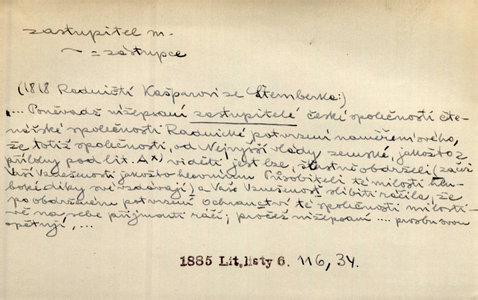 zastupitel m.
~ = zástupce
(1818 Radničtí Kašparovi ze Šternberka:)
... Poněvadž nížepsaní zastupitelé české společnosti čte-
nářské společnosti Radnické potvrzení
že totiž společnosti, od Nejvyšší vlády zemské, jakožto z
přílohy pod lit. A) viděti jest lze, šťastně obdrželi (začež
Vaší Vznešenosti jakožto hlavnímu Působiteli té milosti hlu-
boké díky své vzdávají) a Vaše Vznešenost slíbiti ráčila, že
po obdrženém potvrzení ochranctví té společnosti milosti-
vě na sebe přijmouti ráčí; pročež nížepsaní .... prosbu svou
opětují, ...
1885 Lit. listy 6. 116, 34.